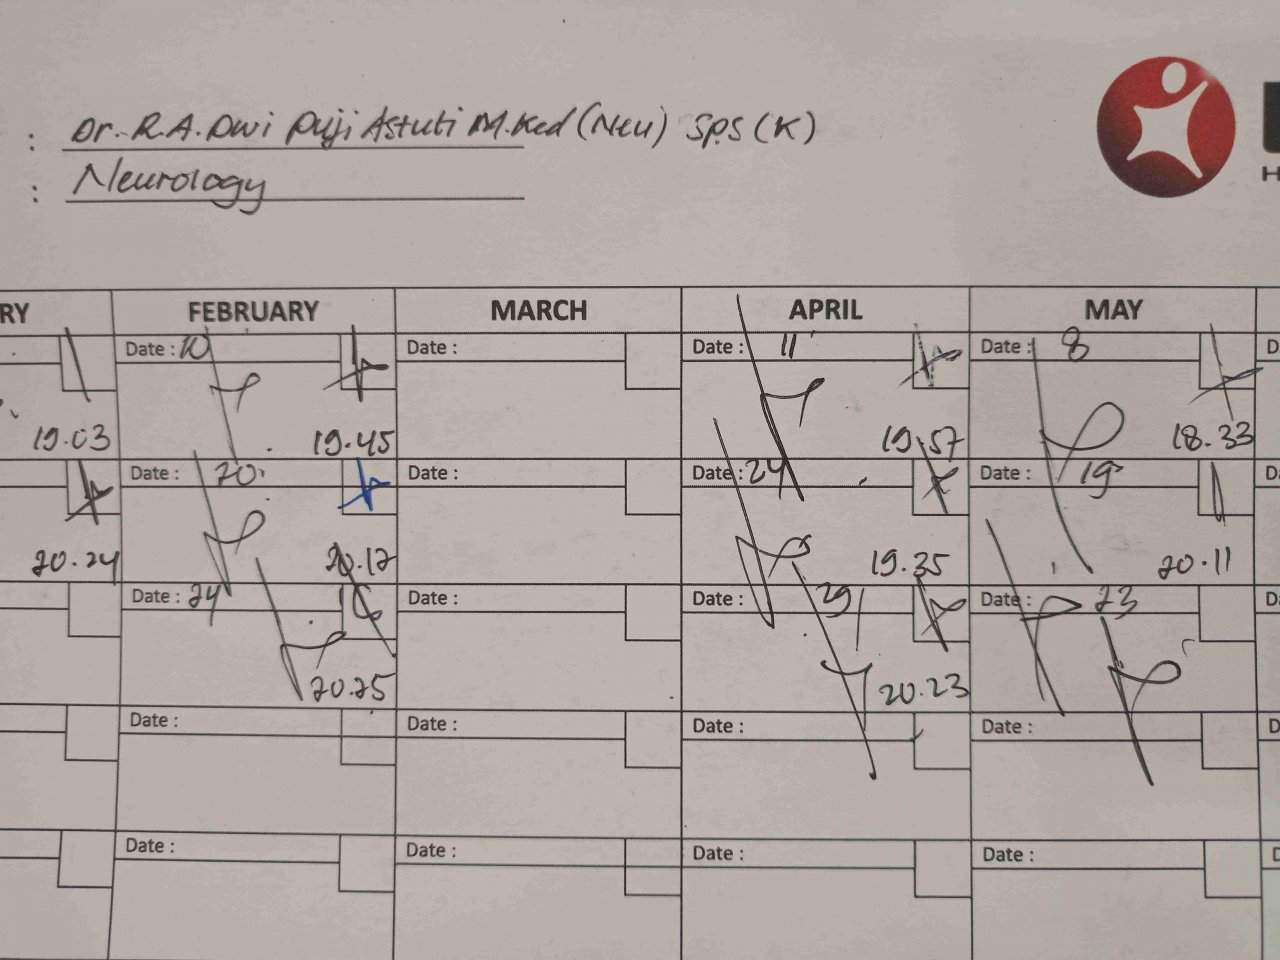 : Dr. R.A. Dwi Puji Astuti M.Ked (Neu) Sp.S (K)
: Neurology
H
RY FEBRUARY MARCH APRIL MAY
Date : 10 Date : Date : 11 Date : 8 D
19.03 19.45 19.57 18.33
Date : 20 Date : Date : 24 Date : 19 D
20.24 20.17 19.35 20.11
Date : 24 Date : Date : 29 Date : 23 D
20.25 20.23
Date : Date : Date : Date : D
Date : Date : Date : Date : D